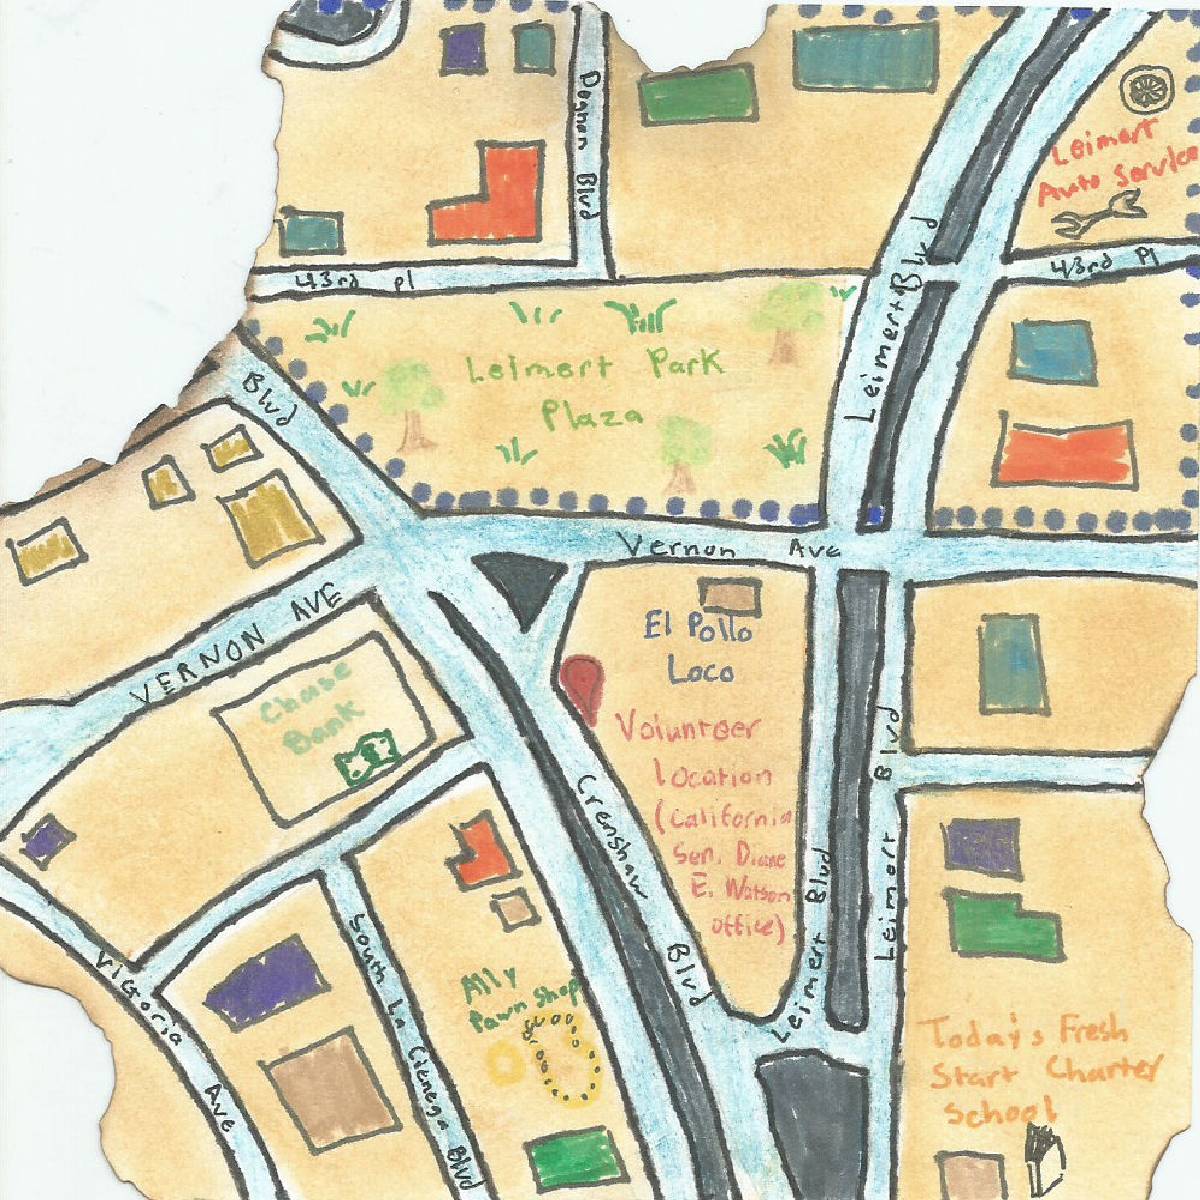 Degnan Blvd
Leimert
Auto Service
43rd pl
43rd Pl
Leimert Blvd
Leimert Park
Plaza
Blvd
Vernon Ave
VERNON AVE
El Pollo
Loco
Chase
Bank
Volunteer
location
(California
Sen. Diane
E. Watson
office)
Crenshaw Blvd
Leimert Blvd
Leimert Blvd
Victoria Ave
South La Cienega Blvd
Ally
Pawn Shop
Today's Fresh
Start Charter
School